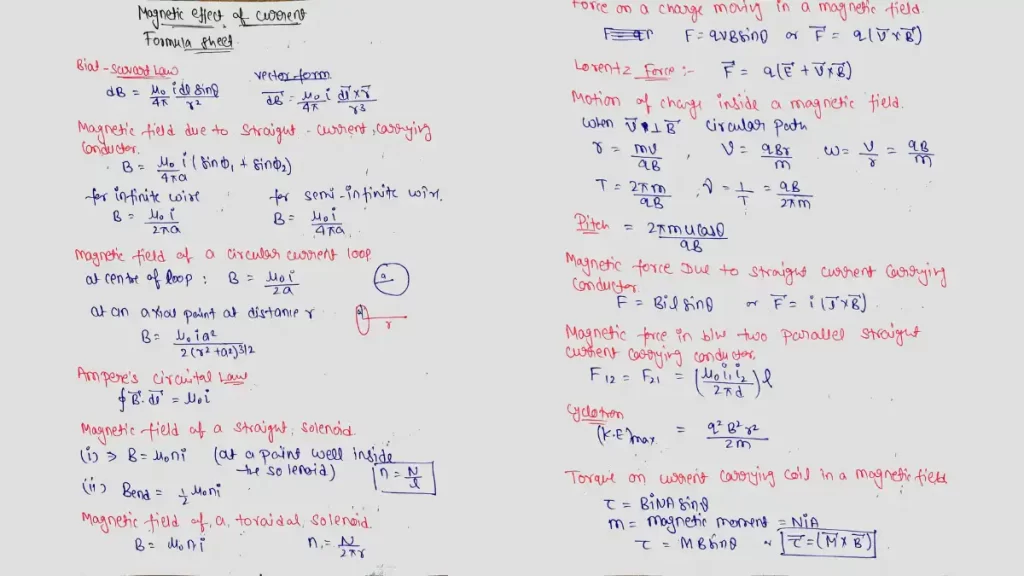 Magnetic effect of current
Formula sheet
Biot-Savart Law
vector form
dB = μ₀/4π idl sinθ/r²
dB⃗ = μ₀/4π i dl⃗×r⃗/r³
Magnetic field due to straight-current, carrying
conductor.
B = μ₀/4πa i (sinϕ₁ + sinϕ₂)
for infinite wire
for semi-infinite wire.
B = μ₀i/2πa
B = μ₀i/4πa
Magnetic field of a circular current loop
at centre of loop : B = μ₀i/2a
a
at an axial point at distance r
a
r
B = μ₀ia²/2(r²+a²)3/2
Ampere's circuital Law
∮B⃗.dl⃗ = μ₀i
Magnetic field of a straight, solenoid
(i) ⇒ B = μ₀ni (at a point well inside
the solenoid)
n = N/l
(ii) Bend = 1/2 μ₀ni
Magnetic field of, a, toroidal, solenoid.
B = μ₀ni
n = N/2πr
Force on a charge moving in a magnetic field.
F = qvBsinθ or F⃗ = q(V⃗×B⃗)
Lorentz Force :- F⃗ = q(E⃗ + V⃗×B⃗)
Motion of charge inside a magnetic field.
when V⃗ ⊥ B⃗ circular path
r = mv/qB , V = qBr/m ω = V/r = qB/m
T = 2πm/qB , ν = 1/T = qB/2πm
Pitch = 2πmucosθ/qB
Magnetic force Due to straight current carrying
conductor.
F = Bilsinθ or F⃗ = i(l⃗×B⃗)
Magnetic force in b/w two parallel straight
current carrying conductor,
F12 = F21 = (μ₀i₁i₂/2πd)l
Cyclotron
(K.E)max = q²B²r²/2m
Torque on current carrying coil in a magnetic field
τ = BiNAsinθ
m = magnetic moment = NiA
τ = MBsinθ or τ⃗ = (M⃗×B⃗)